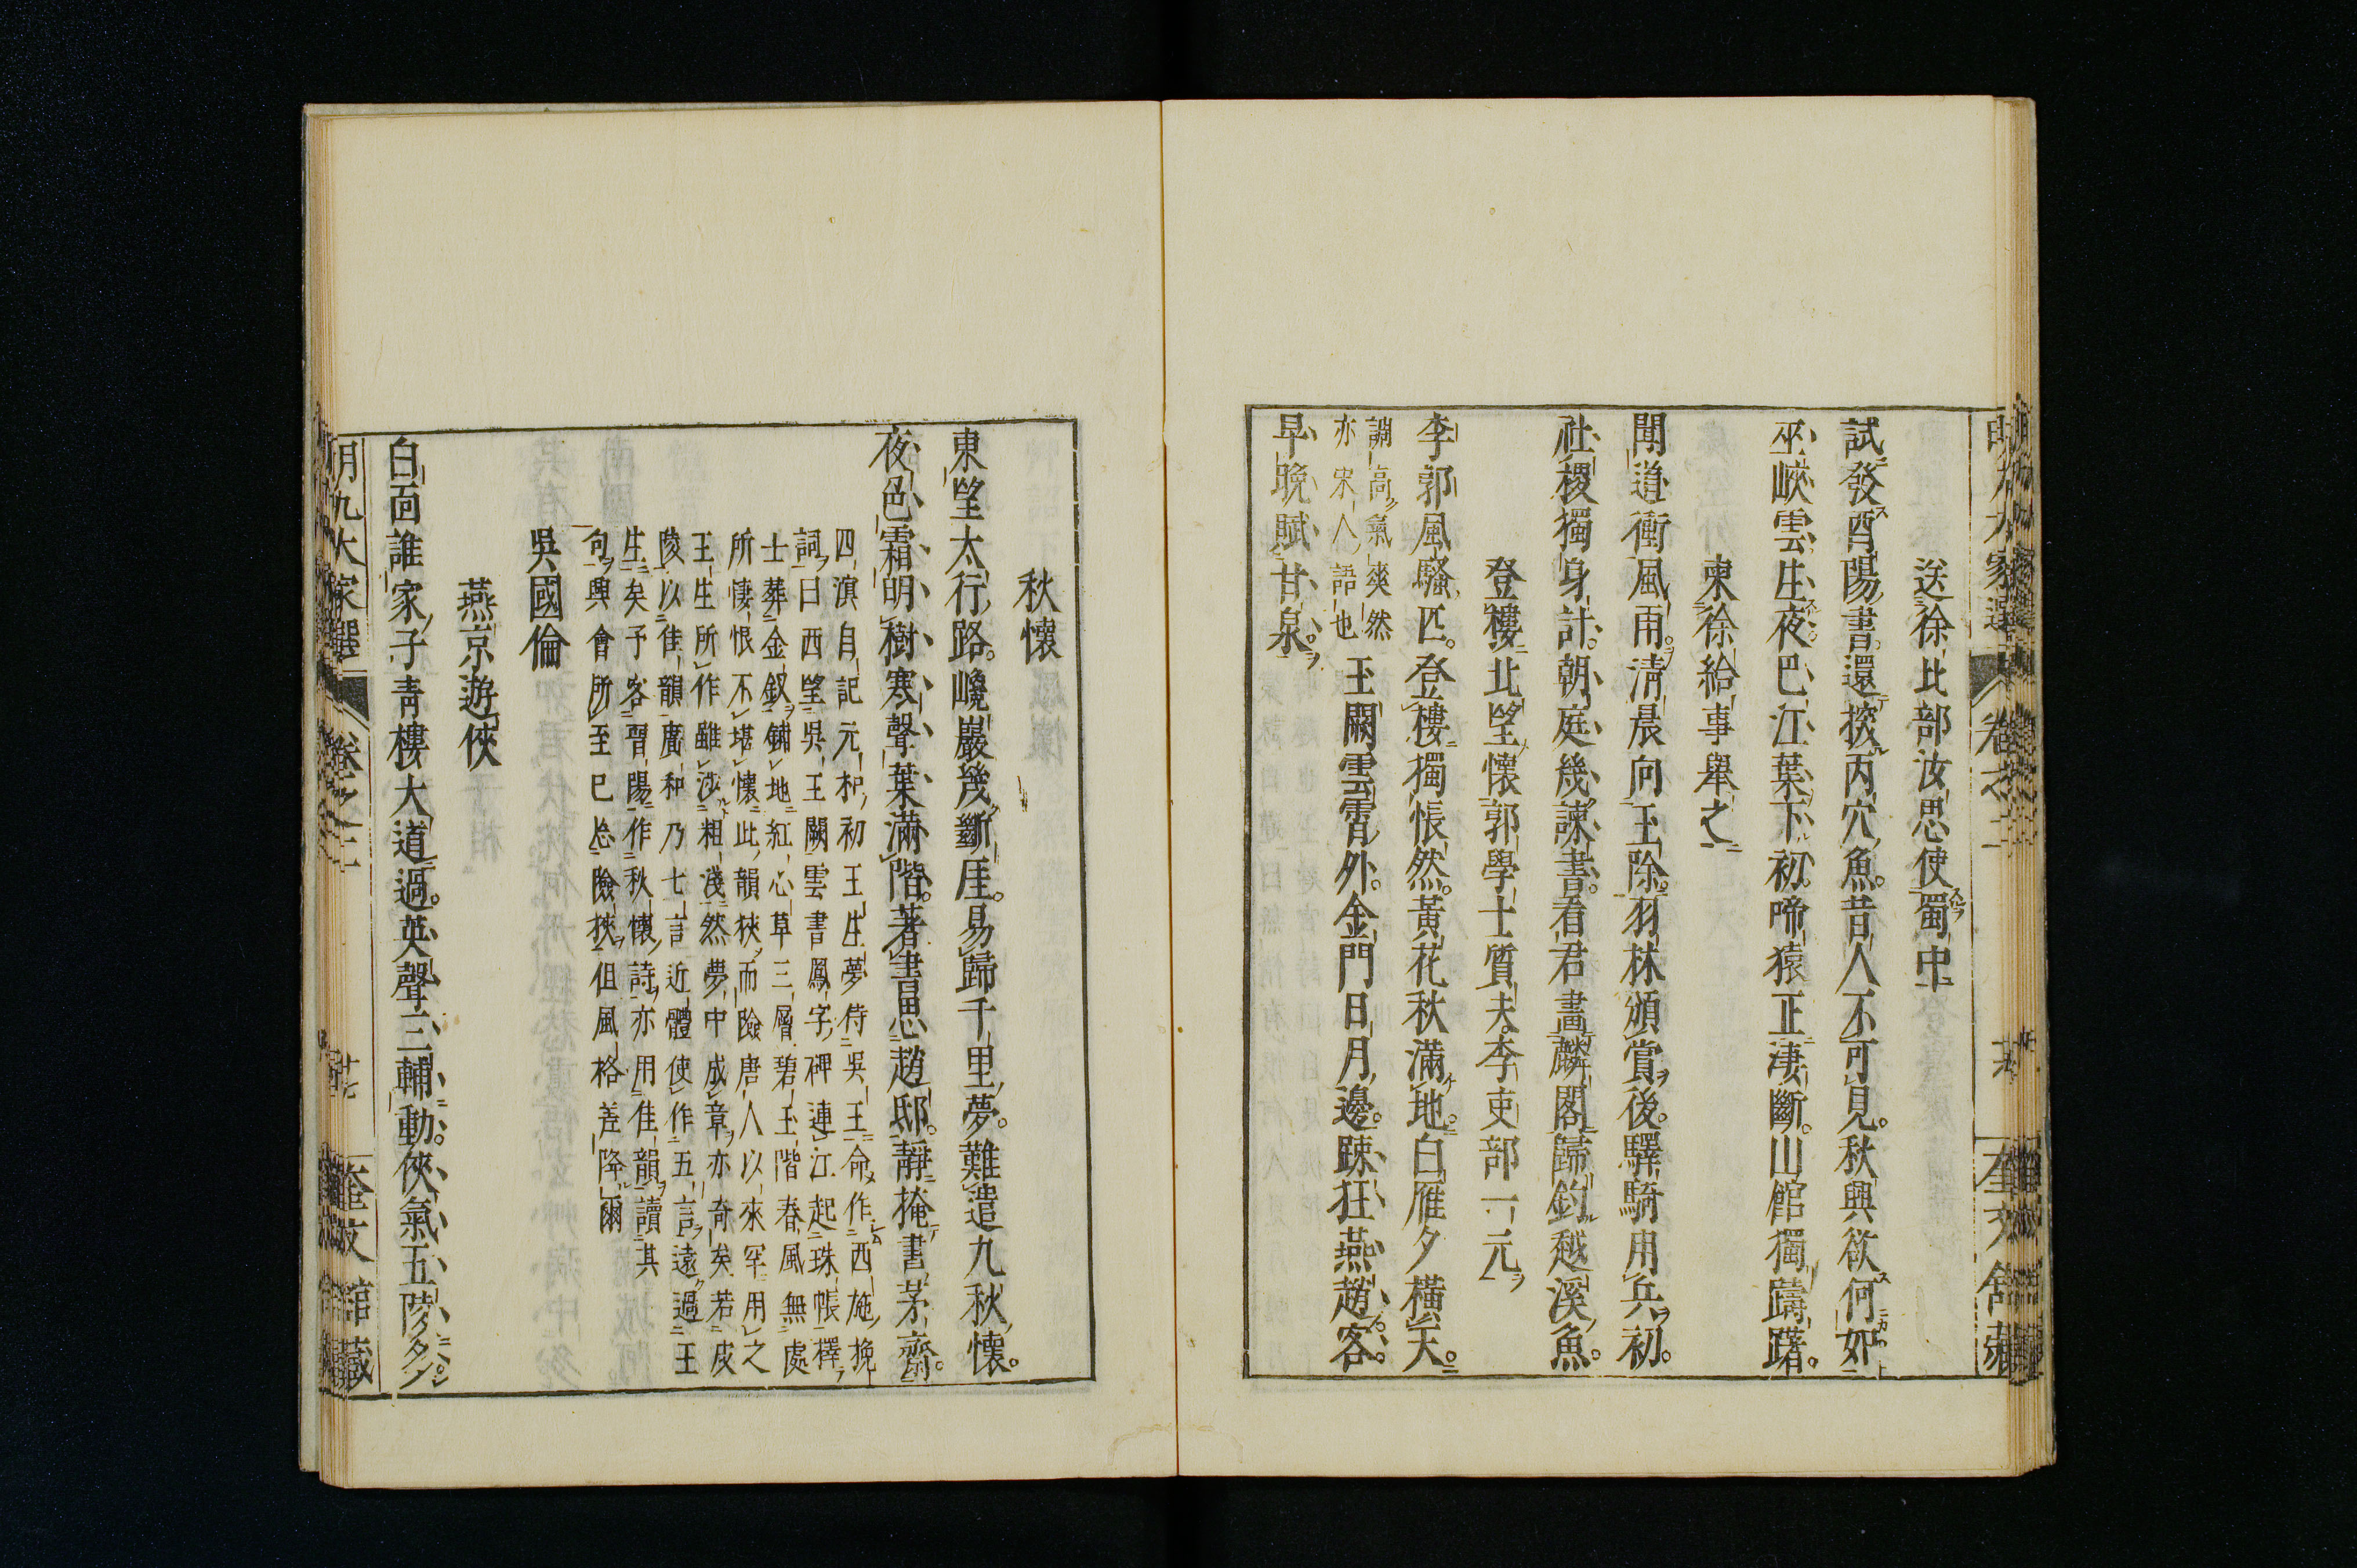 送徐比部汝思使蜀中
試發酉陽書還探丙穴魚。昔人不可見。秋興欲何如
巫峽雲生夜巴江葉下初。啼猿正淒斷。山館獨躊躇。
柬徐給事舉之
聞道衝風雨。清晨向玉除。羽林頒賞後。驛騎用兵初。
社稷獨身計。朝庭幾諫書。看君畫麟閣歸釣越溪魚。
登樓北望懷郭學士質夫李吏部一元
李郭風騷匹。登樓獨悵然。黃花秋滿地。白雁夕橫天。
調高氣爽然
亦宋人語也
玉闕雲霄外。金門日月邊。疎狂燕趙客。
早晚賦甘泉。
秋懷
東望太行路。巉巖幾斷厓。易歸千里夢。難遣九秋懷。
夜色霜明樹寒聲葉滿階。著書思趙邸。靜掩書茅齋。
四溟自記元和初王生夢侍吳王命作西施挽
詞曰西望吳王闕雲書鳳字碑連江起珠帳擇
士葬金釵鋪地紅心草三層碧玉階春風無處
所悽恨不堪懷此韻狹而險唐人以來罕用之
王生所作雖沙粗淺然夢中成章亦奇矣若皮
陵以佳韻廣和乃七言近體使作五言遠過王
生矣予客晋陽作秋懷詩亦用佳韻讀其
句興會所至已忘險狹但風格差降爾
吳國倫
燕京遊俠
白面誰家子青樓大道過。英聲三輔動。俠氣五陵多
明九大家選
卷之二
廿七
奎文館藏